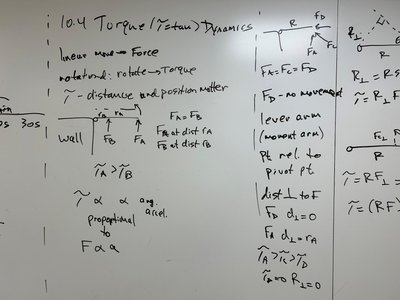 10.4 Torque (τ=tau) Dynamics
linear: move → Force
rotational: rotate → Torque
τ - distance and position matter
rA rB
wall
FB FA
FA = FB
FA at dist rA
FB at dist rB
τA > τB
τ ∝ α ang. accel.
propotional
to
F ∝ a
0s 30s
R FD
FA FC
FA = FC = FD
FD - no movement
lever arm
(moment arm)
pt rel. to
pivot pt
dist ⊥ to F
FD d⊥ = 0
FA d⊥ = rA
τA > τC > τD
τD = 0 R⊥ = 0
R⊥
R
τ = R⊥F
R
τ = RF⊥